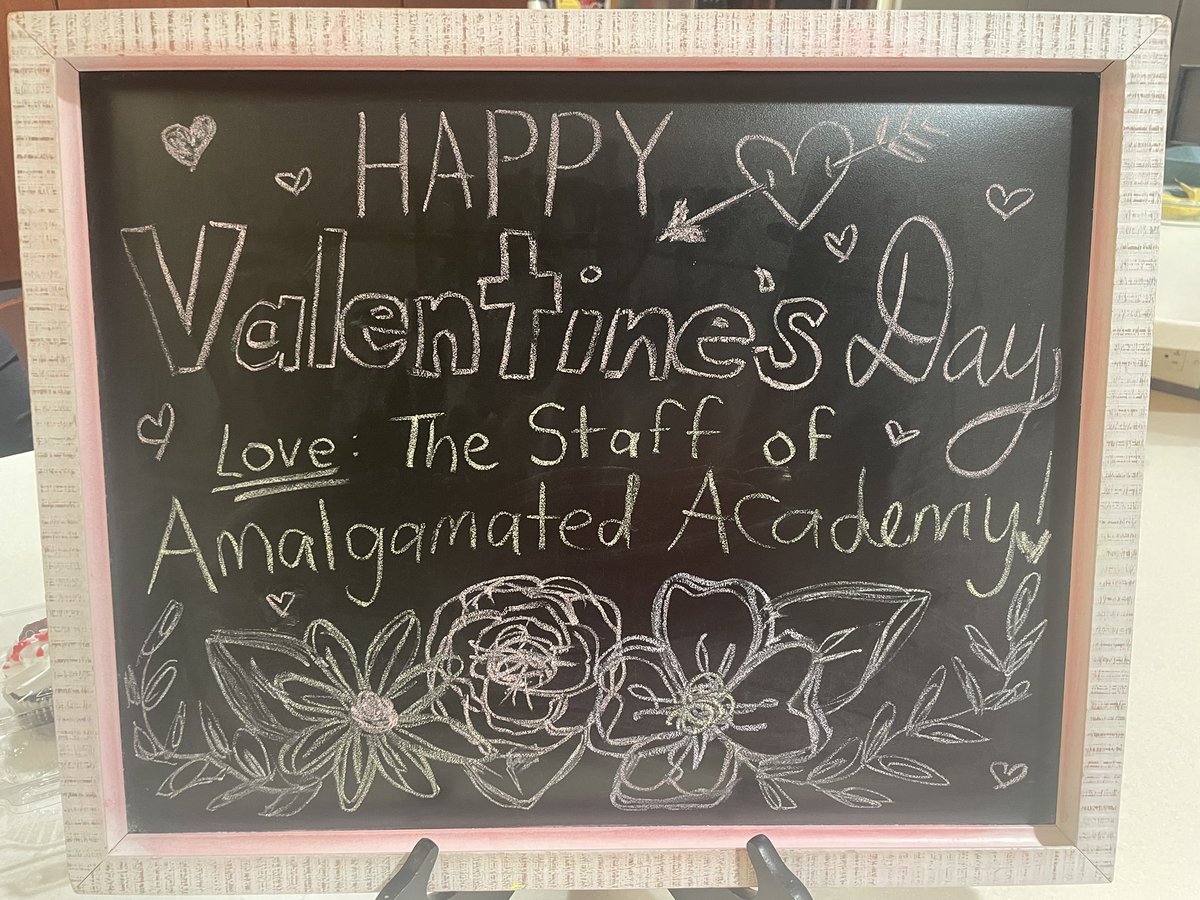 HAPPY
Valentine's Day
Love: The Staff of
Amalgamated Academy!